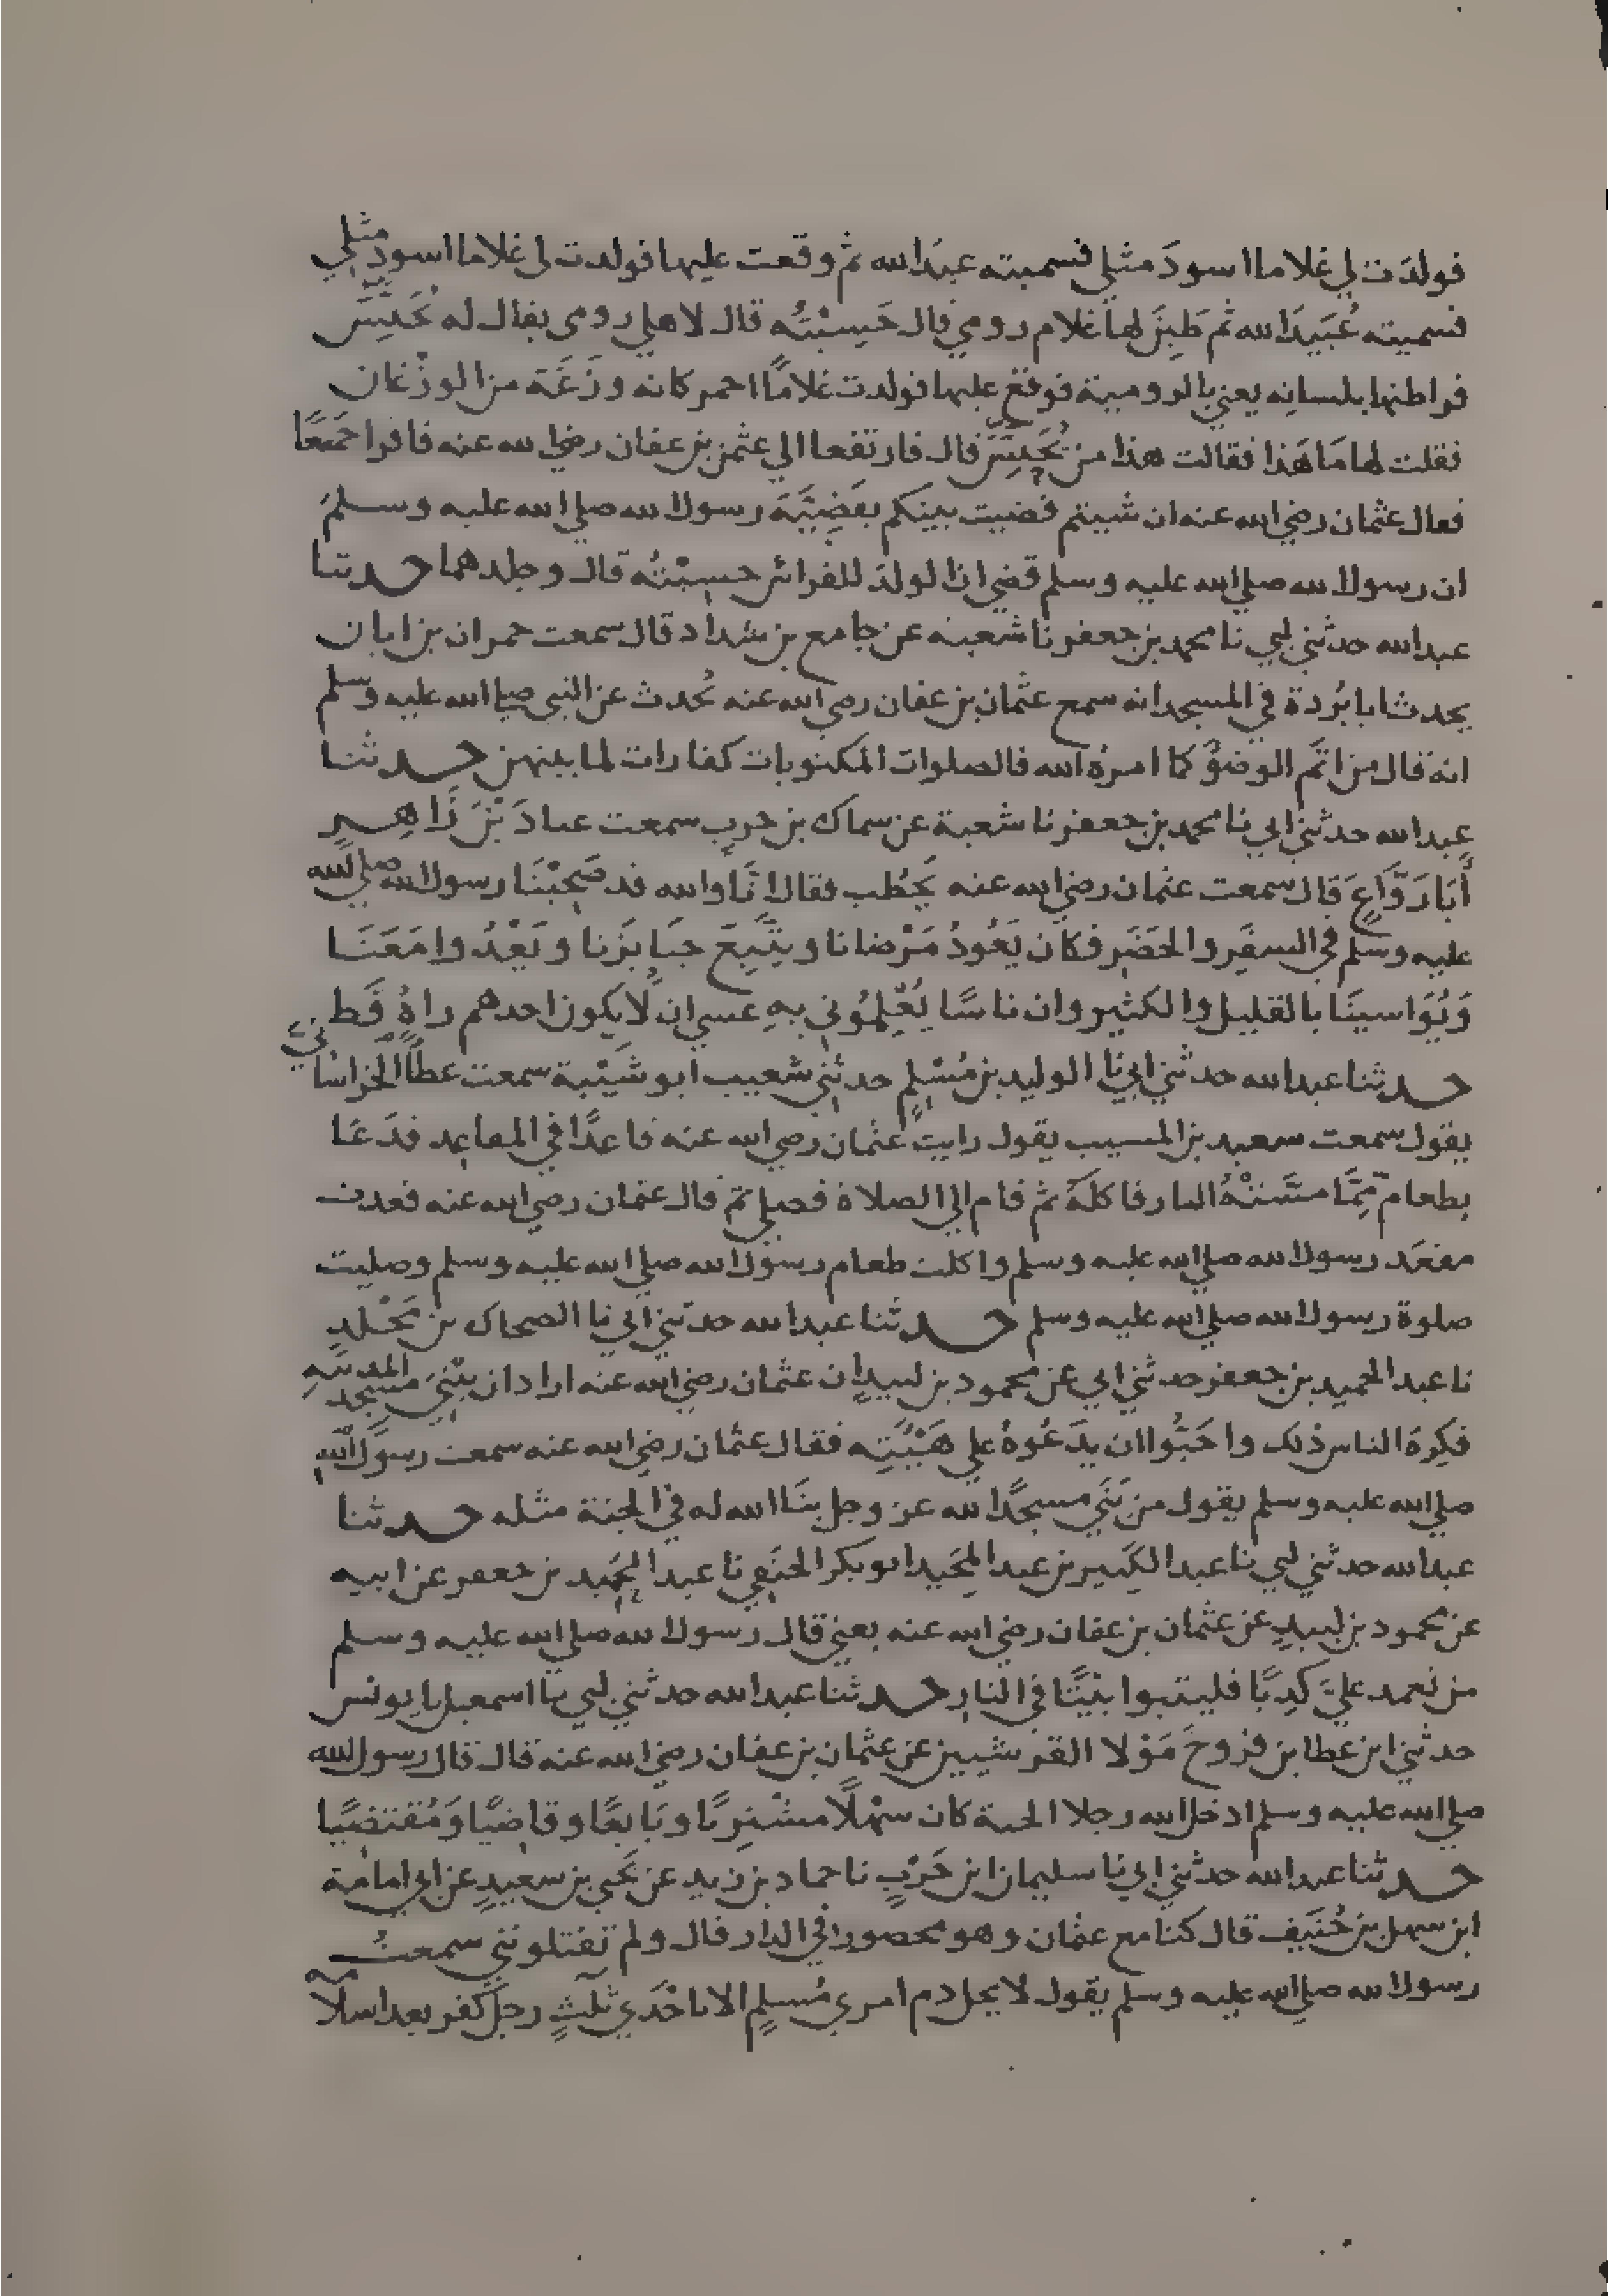 فولدت لي غلاما اسودَ مثلي فسميته عبدَ الله ثم وقعت عليها فولدت لى غلاما اسود مثلي
فسميته عُبَيدَ الله ثم طَبِنَ لها غلام رومي قال حَسِبْتُه قال لاهلي رومى يقال له يُحَنِّسَ
فراطنها بلسانه يعني بالرومية فوقع عليها فولدت غلامًا احمر كانه وزَغَة من الوزْغان
فقلت لها مَا هَذا فقالت هذا من يُحَنِّسَ قال فارتفعا الي عثمن بن عفان رضي الله عنه فاقرا جميعًا
فقال عثمان رضي الله عنه ان شيتم قضيت بينكم بقَضِيَّةَ رسول الله صلي الله عليه وسلم
ان رسول الله صلي الله عليه وسلم قضي ان الولدَ للفراش حسِبْتُه قال وجلدهما حدثنا
عبد الله حدثني ابي نا محمد بن جعفر نا شعبة عن جامع بن شداد قال سمعت حمران بن ابان
يحدث ابا بُردة في المسجد انه سمع عثمان بن عفان رضي الله عنه يُحدث عن النبي صلي الله عليه وسلم
انه قال من اتَم الوضوُ كما امرهُ الله فالصلوات المكتوبات كفارات لما بينهن حدثنا
عبد الله حدثني ابي نا محمد بن جعفر نا شعبة عن سماك بن حرب سمعت عبادَ بْنَ زَاهِرٍ
أَبَا رَوَّاعٍ قال سمعت عثمان رضي الله عنه يَخطُب فقال انَّا والله قد صَحِبْنَا رسول الله صلي الله
عليه وسلم في السفَرِ والحَضَرِ فكان يَعُودُ مَرْضانا ويتَّبِعَ جنَايزَنا ويَغْدُوا مَعَنَا
وَيُوَاسينَا بالقليل والكثير وان ناسًا يُعْلِمُوني بهِ عسي ان لا يكون احدهم راهُ قَط
حدثنا عبد الله حدثني ابي نا الوليد بن مُسْلِمٍ حدثني شعيب ابو شَيْبة سمعت عطاً الخراساني
يقول سمعت سعيد بن المسيب يقول رايت عثمان رضي الله عنه قاعدًا في المقاعِد فدَعَا
بطعام مِمَّا مسَّتْهُ النار فاكلهُ ثم قام الي الصلاة فصلي ثم قال عثمان رضي الله عنه قعدت
مقعَد رسول الله صلي الله عليه وسلم واكلت طعام رسول الله صلي الله عليه وسلم وصليت
صلوة رسول الله صلي الله عليه وسلم حدثنا عبد الله حدثني ابي نا الضحاك بن مَخْلدٍ
نا عبد الحميد بن جعفر حدثني ابي عن محمود بن لبيدٍ ان عثمان رضي الله عنه اراد ان يبْنيَ مسجد المدينهِ
فكِرهَ الناس ذلك واحَبُّوا ان يدَعُوهُ علي هَيْئَتِه فقال عثمان رضي الله عنه سمعت رسولَ الله
صلي الله عليه وسلم يقول من بَنَي مسجدًا لله عز وجل بنَا الله له في الجنة مثله حدثنا
عبد الله حدثني ابي نا عبد الكَبير بن عبد المجَيد ابو بكر الحنَفي نا عبد الحَميد بن جعفر عن ابيه
عن محمود بن لبيدٍ عن عثمان بن عفان رضي الله عنه يعني قال رسول الله صلي الله عليه وسلم
من تعمد عليَّ كذِبًا فليتبوا بيْتًا في النار حدثنا عبد الله حدثني ابي نا اسمعيل نا يونس
حدثني ابن عطا بن فروخَ مَوْلا القرشيين عن عثمان بن عفان رضي الله عنه قال قال رسول الله
صلي الله عليه وسلم ادخل الله رجلا الجنة كان سهْلًا مشْترِيًا وبَايعًا وقاضيًا وَمُقتضيًا
حدثنا عبد الله حدثني ابي نا سليمان ابن حَرْبٍ نا حماد بن زيد عن يَحيى بن سعيدٍ عن ابي امامة
ابن سهل بن حُنَيف قال كنا مع عثمان وهو محصور في الدار قال ولم تقتلونني سمعتُ
رسول الله صلي الله عليه وسلم يقول لا يحل دم امري مُسلمٍ الا باحْدَي ثلثٍ رجل كفر بعد اسلامه